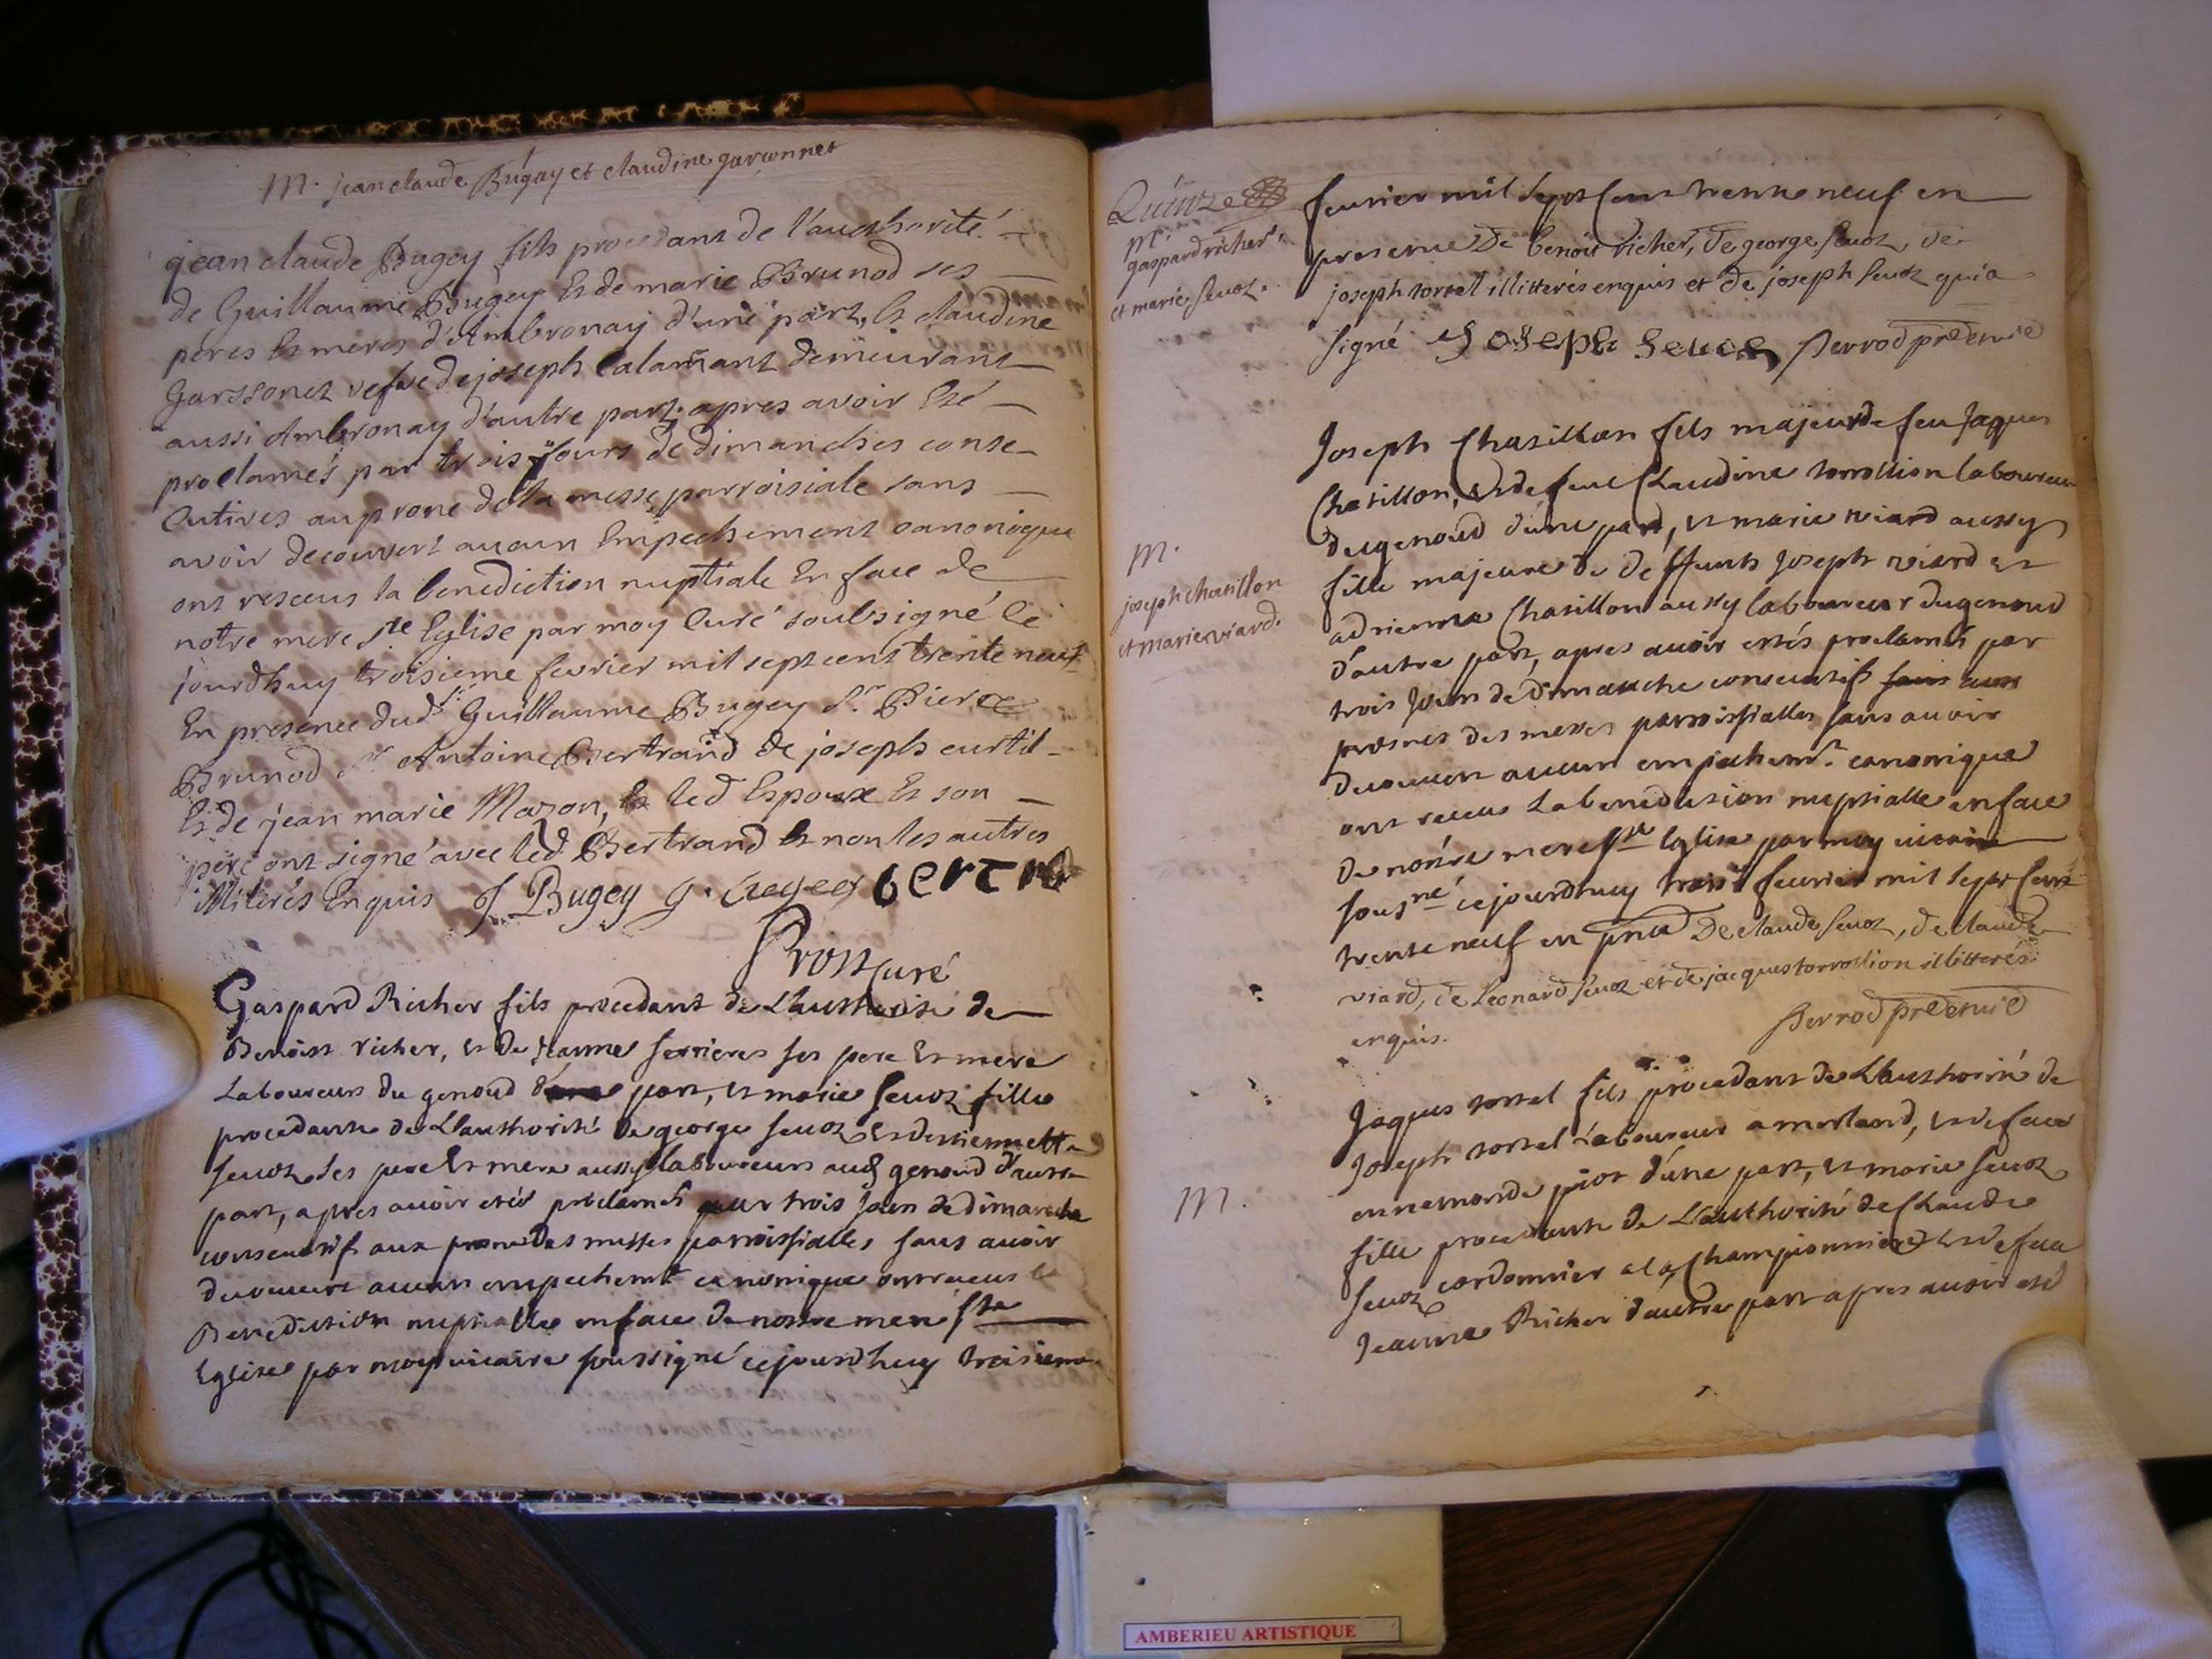 M. jean claude Bugay et claudine garconnet
jean claude Bugey fils procedant de l'authorité
de Guillaume Bugey Et de marie Brunod ses
peres Et meres d'Ambronay d'une part, Et claudine
Garssonet vefve de joseph Calamant demeurant
aussi Ambronay d'autre part apres avoir Eté
proclamés par trois jours de dimanches conse-
Cutives au prone de la messe parroisiale sans
avoir decouvert aucun Empechement canonique
ont resceus la benediction nuptiale En face de
notre mere ste Eglise par moy Curé soubsigné Ce
jourdhuy troisieme fevrier mil sept cent trente neuf
En presence dudt Guillaume Bugey Sr Pierre
Brunod Sr Antoine Bertrand de joseph curtil-
Et de jean marie Mazon, Et led Espoux Et son
pere ont signé avec led Bertrand Et non les autres
illiterés Enquis J Bugey g. Bugey bertr
Prost Curé
Gaspard Richer fils procedant de L'authorité de
Benoist richer, et de jeanne ferrieres ses pere Et mere
Laboureurs du genoud d'une part, et marie seuoz fille
procedante de L'authorité de george seuoz Et destiennette
seuoz ses pere Et mere aussy laboureurs aud genoud d'autre
part, apres auoir etés proclamés par trois jours de dimanche
consecutifs aux prone des messes parroissialles sans auoir
decouuert aucun empechemt canonique ont receus la
Benediction nuptialle en face de nostre mere ste
Eglise par moy vicaire soussigné cejourdhuy troisieme
Quinze
M.
gaspard richer
et marie seuoz.
feurier mil sept Cent trente neuf en
presence de benoit richer, de george seuoz, de
joseph tortel illitterés enquis et de joseph seuoz qui a
signé Joseph seuoz perrod pre et vic
M.
joseph chatillon
et marie viard.
Joseph Chatillon fils majeur de feu Jaques
Chatillon, et de feue Claudine torrollion laboureur
du genoud d'une part, et marie viard aussy
fille majeure de deffunts Joseph viard et
adrienne Chatillon aussy laboureur du genoud
d'autre part, apres auoir estés proclamés par
trois jours de dimanche consecutifs sans aux
prosnes des messes parroissialles sans auoir
decouuert aucun empechemt canonique
ont receus La benediction nuptialle en face
de nostre mere ste Eglise par moy vicaire
sousné ce jourdhuy trois feurier mil sept Cent
trente neuf en pnce de claude seuoz, de claude
viard, de Leonard seuoz et de jacques torrollion illitterés
enquis. perrod pre et vic
M.
Jaques tortel fils procedant de L'authorité de
Joseph tortel Laboureur a morland, et de feue
ennemonde piot d'une part, et marie seuoz
fille procedante de L'authorité de Claude
seuoz cordonnier a la Championniere et de feue
Jeanne Richer d'autre part apres auoir esté
AMBERIEU ARTISTIQUE